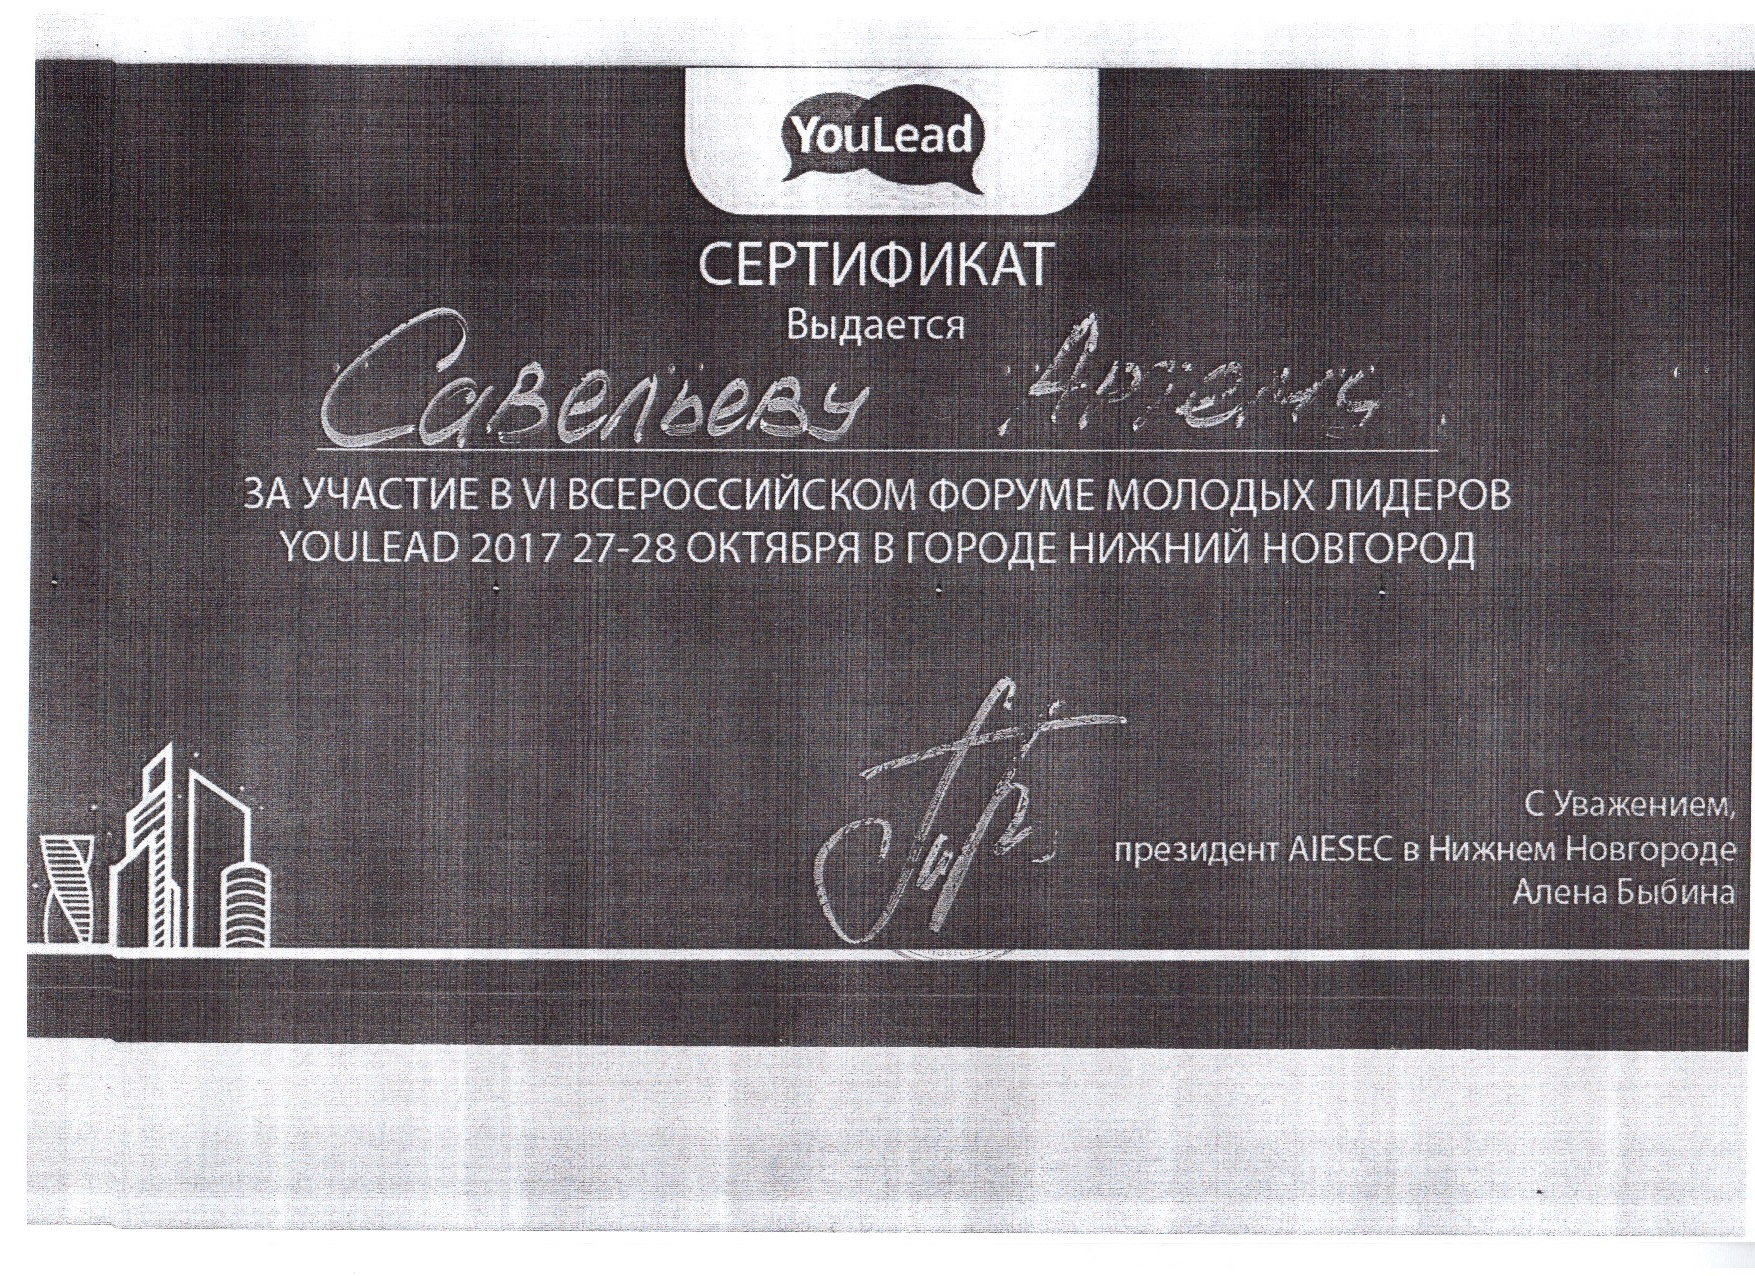 YouLead
СЕРТИФИКАТ
Выдается
Савельеву Артему
ЗА УЧАСТИЕ В VI ВСЕРОССИЙСКОМ ФОРУМЕ МОЛОДЫХ ЛИДЕРОВ
YOULEAD 2017 27-28 ОКТЯБРЯ В ГОРОДЕ НИЖНИЙ НОВГОРОД
С Уважением,
президент AIESEC в Нижнем Новгороде
Алена Быбина